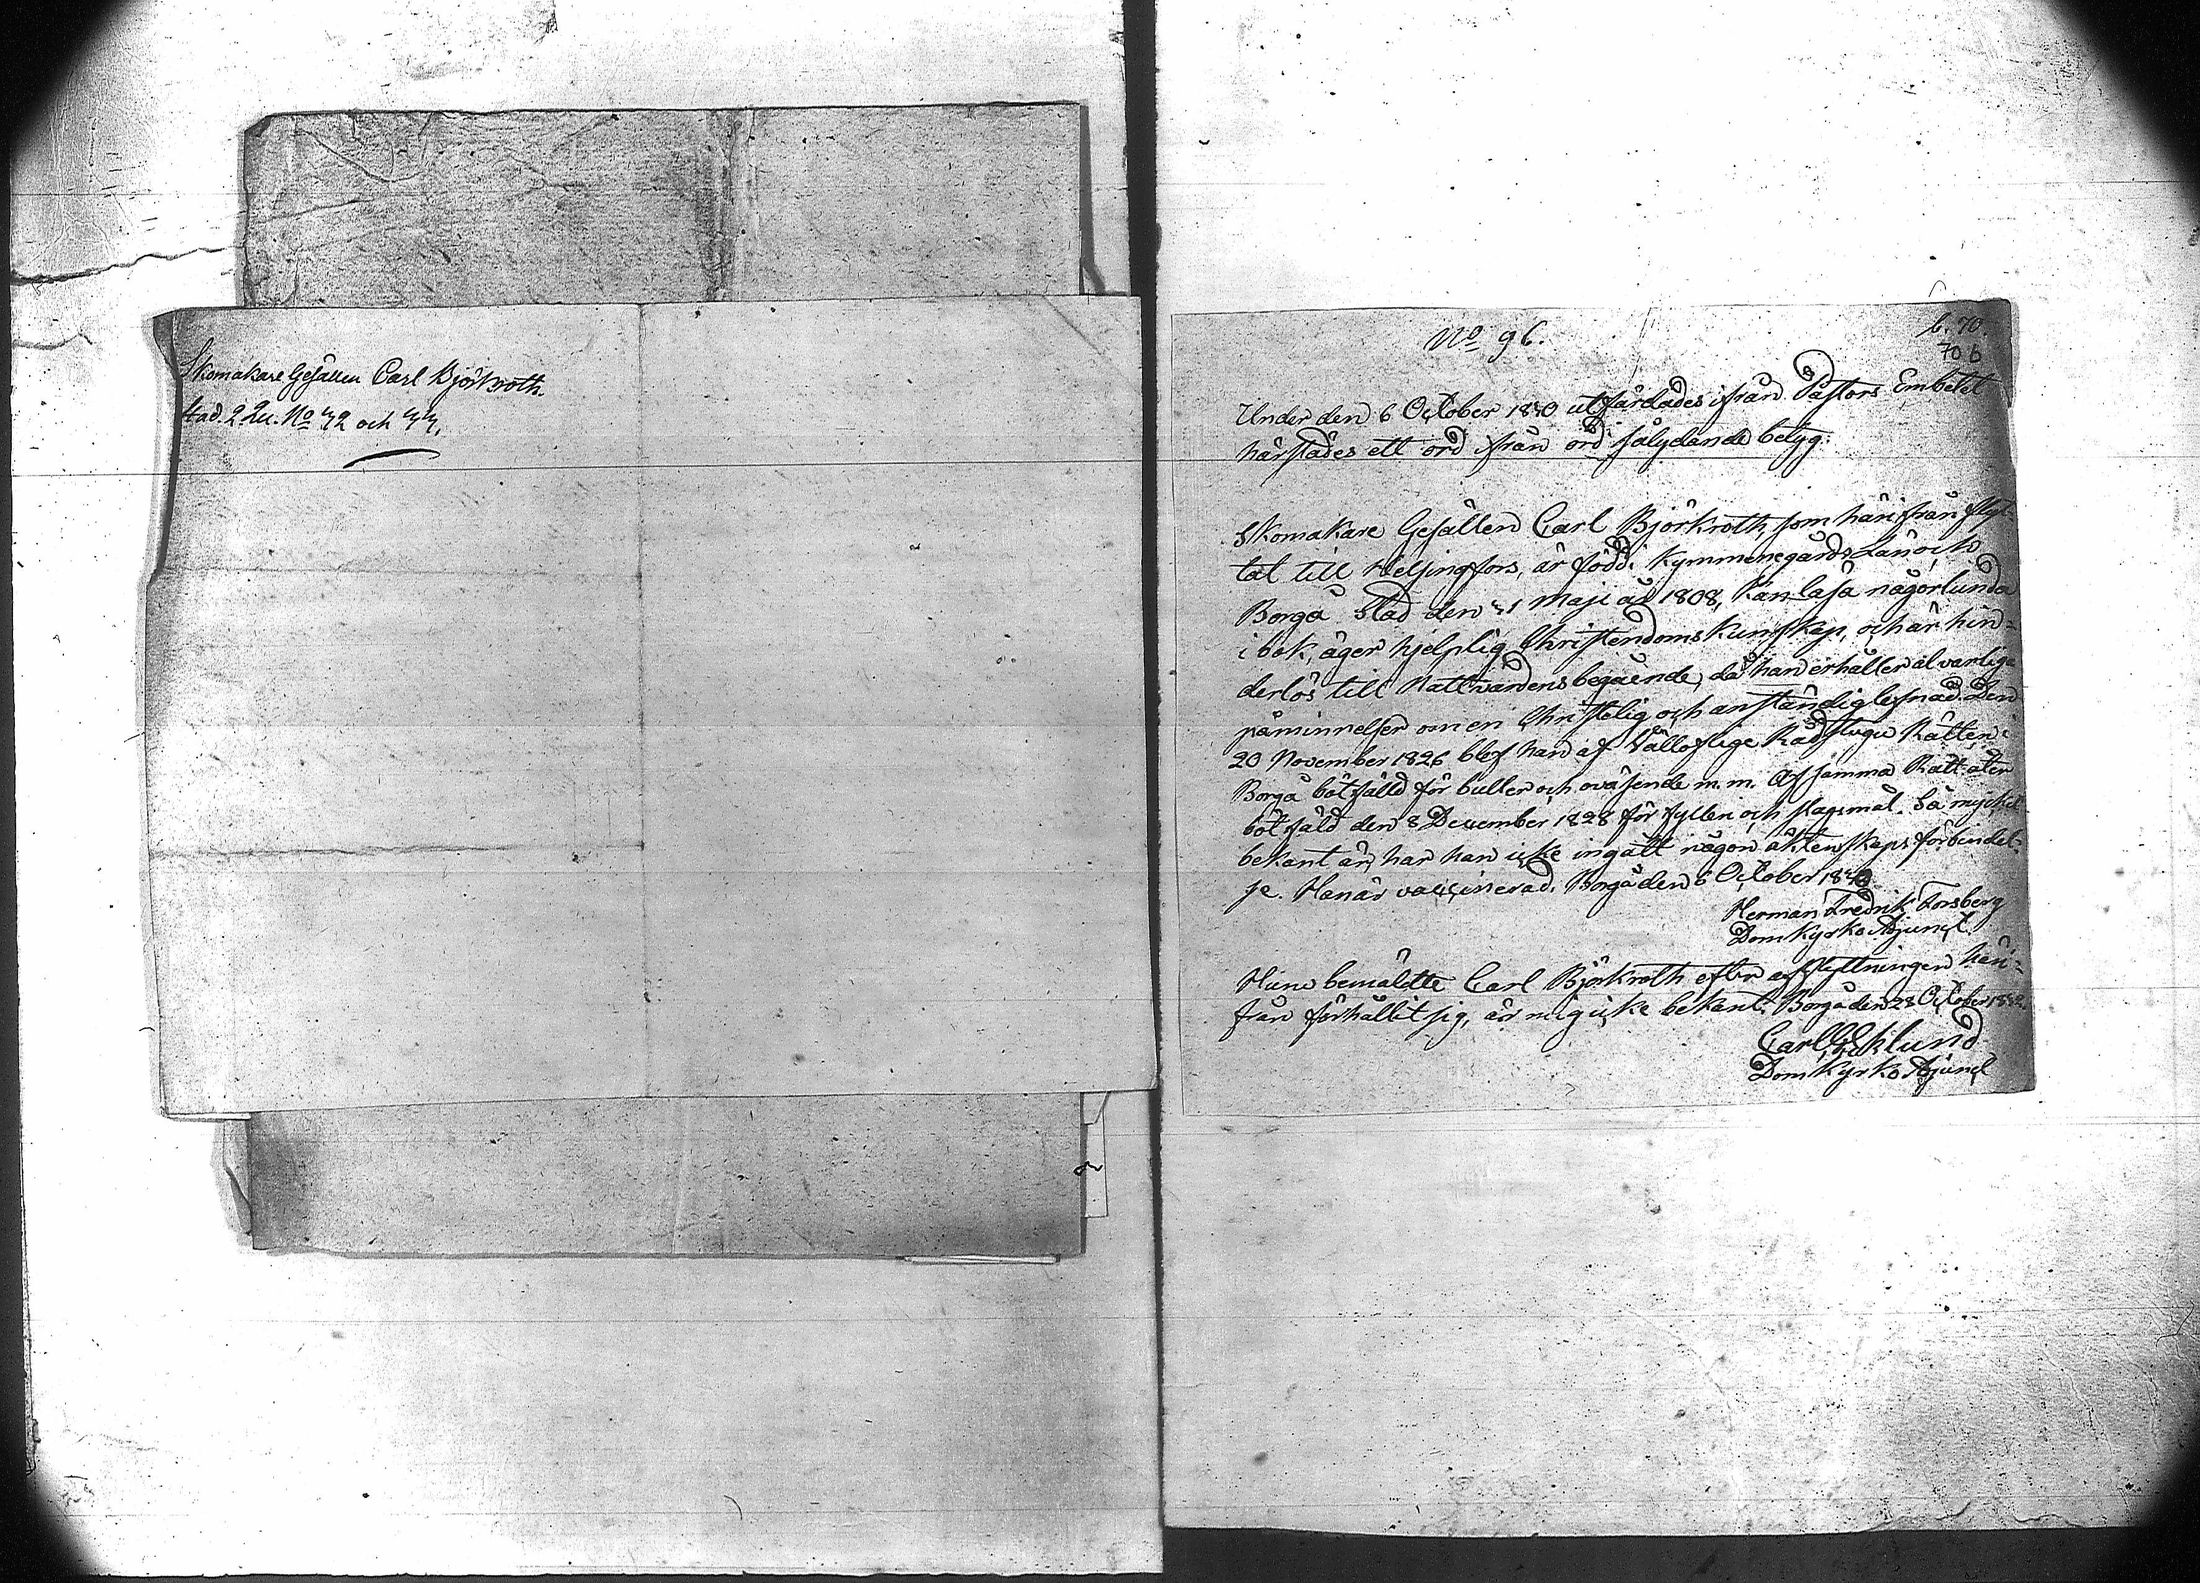 Skomakare Gesällen Carl Björkroth.
Stad. 2 Qu. No 32 och 33.
No 96.
b. 70
70 b
Under den 6 October 1830 utfärdades ifrån Pastors Embetet
härstädes ett ord ifrån ord sålydande betyg:
Skomakare Gesällen Carl Björkroth, som härifrån flyt-
tat till Helsingfors, är född i Kymmenegårds Län och
Borgå Stad den 31 Maji år 1808, kan läsa någorlunda
i bok, äger hjelplig Christendoms kunskap, och är hin-
derlös till Nattvardens begående, då han erhåller alvarliga
påminnelser om en Christelig och anständig lefnad. Den
20 November 1826 blef han af Välloflige Rådstugu Rätten i
Borgå bötfälld för buller och oväsende m. m. Af samma Rätt åter
bötfäld den 8 December 1828 för fylleri och slagsmål. Så mycket
bekant är, har han icke ingått någon äktenskaps förbindel-
se. Han är vaccinerad. Borgå den 6 October 1830.
Herman Fredrik Forsberg
Domkyrko Adjunct.
Huru bemäldte Carl Björkroth efter afflyttningen häri-
från förhållit sig, är mig icke bekant. Borgå den 28 October 1832.
Carl Eklund
Domkyrko Adjunct